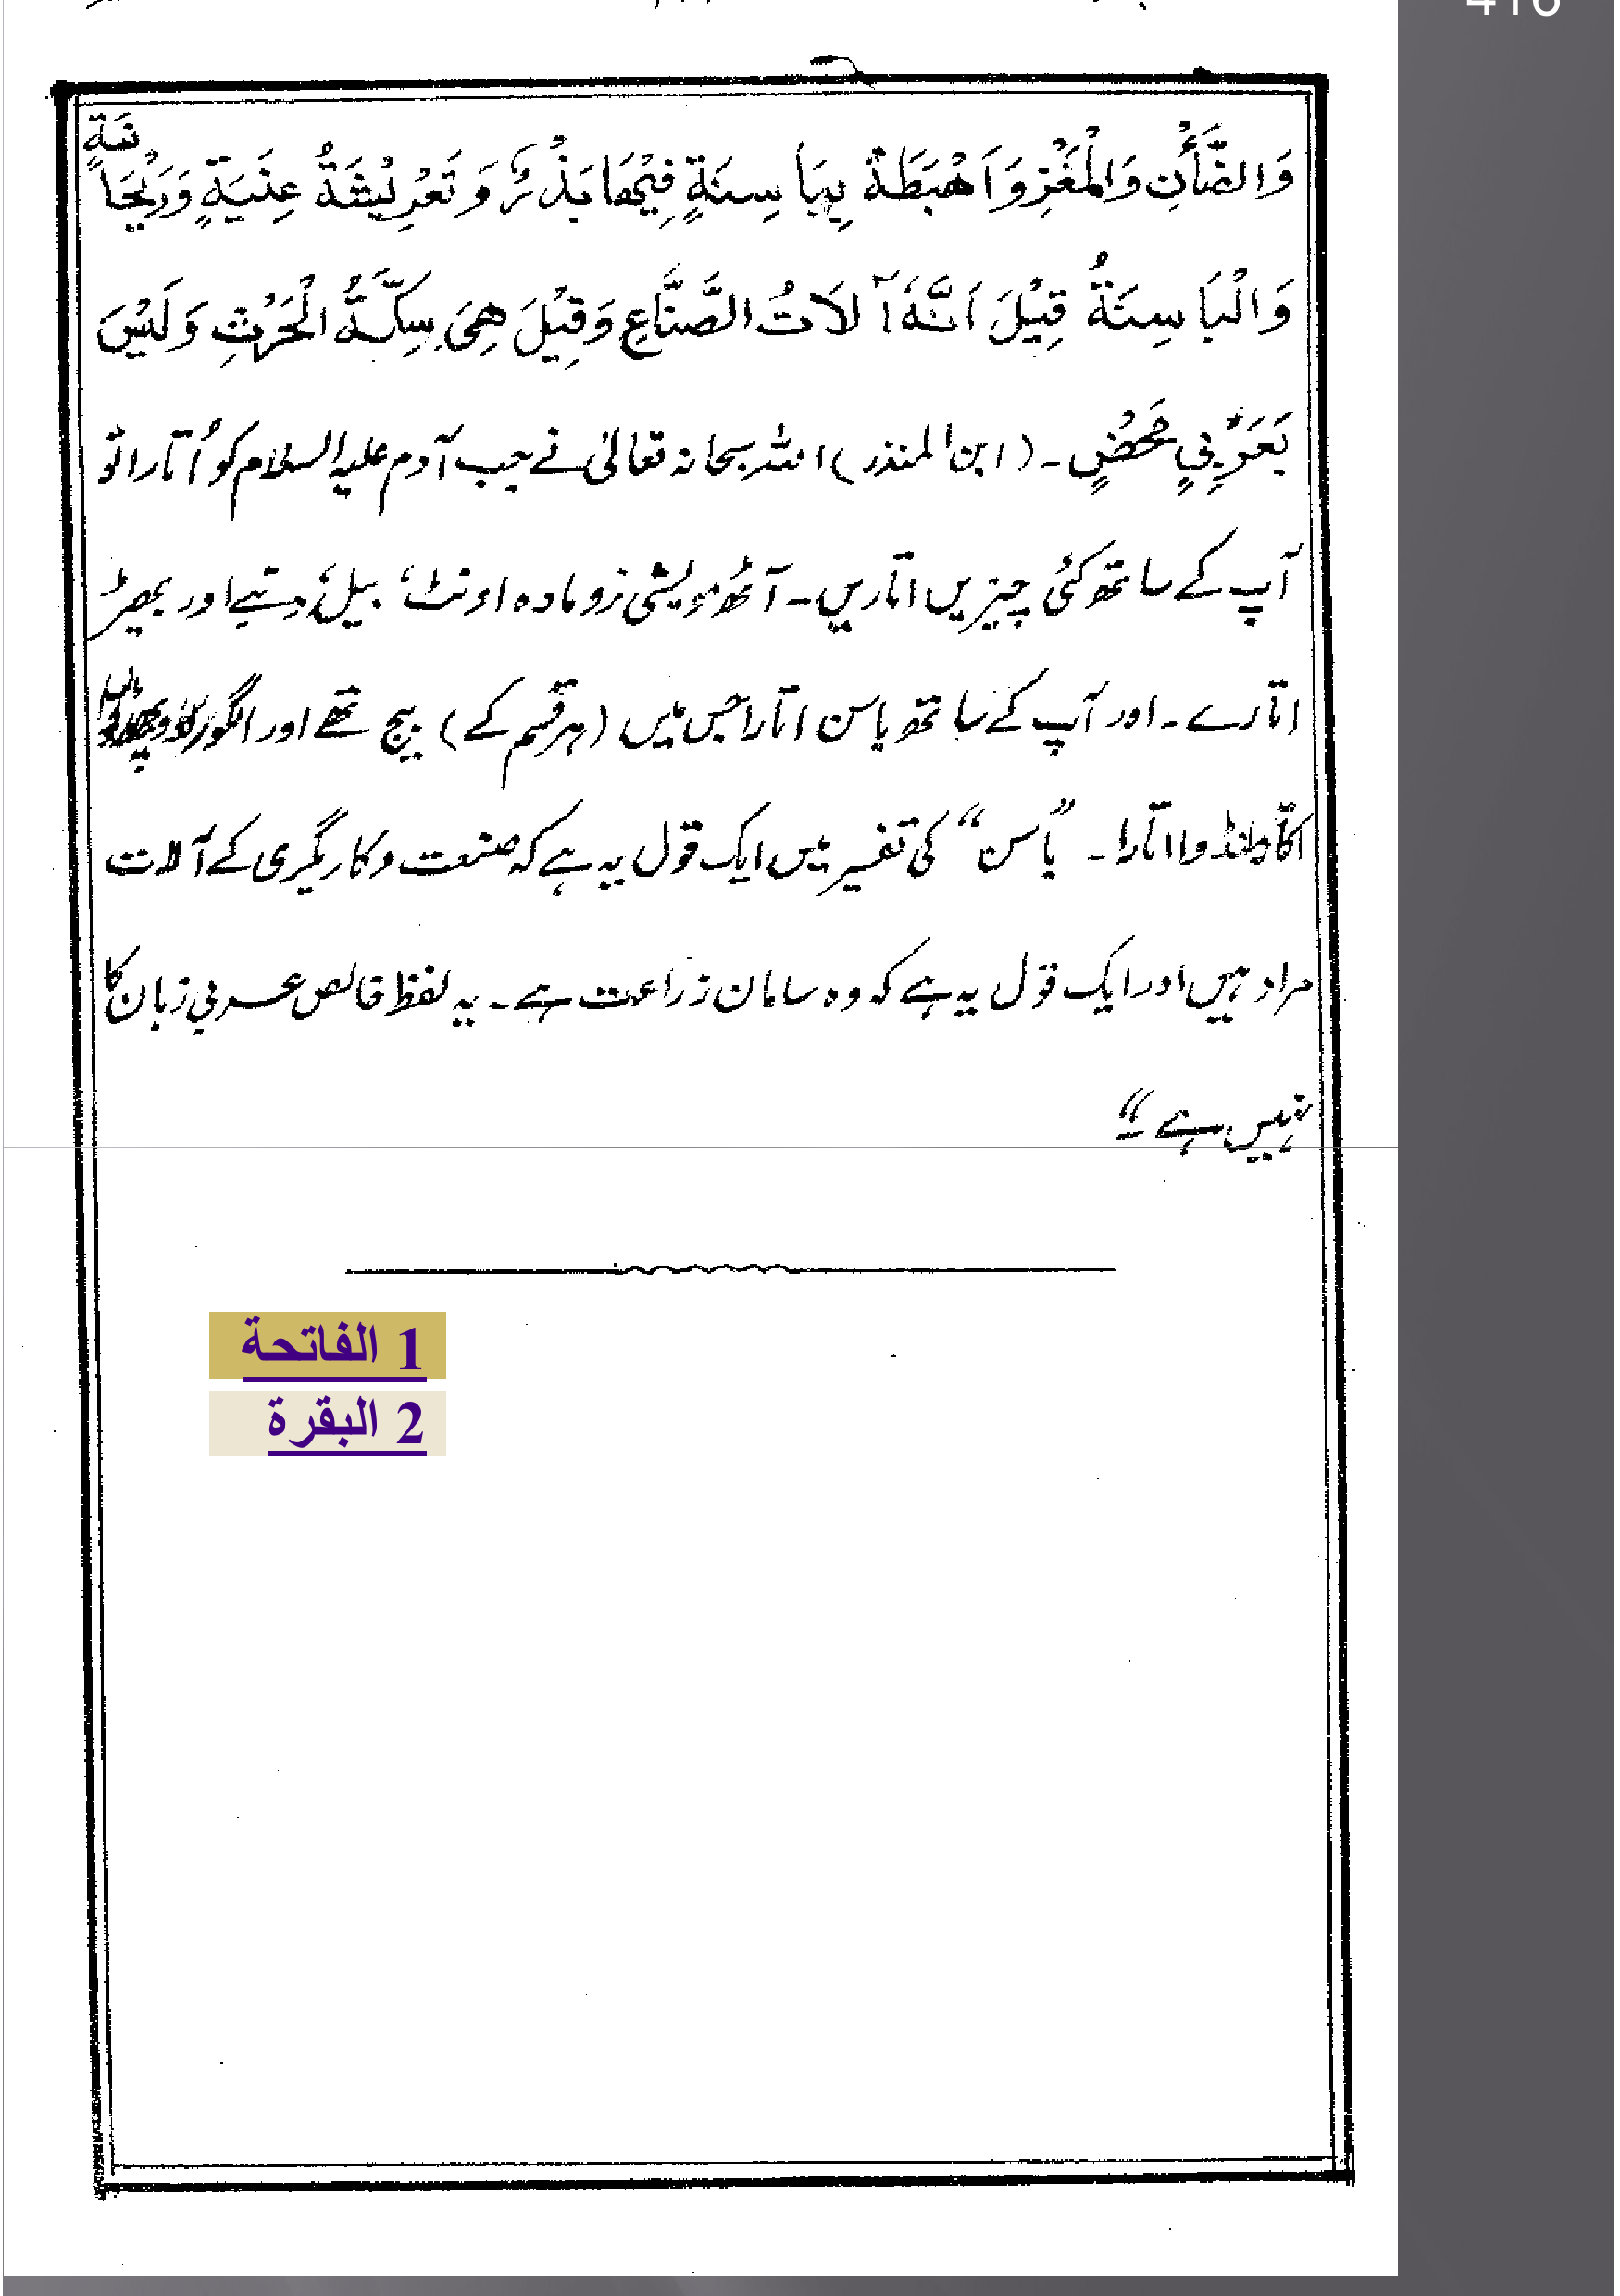 416
نَةٍ
وَالضَّأْنِ وَالْمَعْزِ وَاَهْبَطَهٗ بِبَاسِنَةٍ فِيْهَا بَذْرٌ وَ تَعْرِيْشَةُ عِنَبَةٍ وَرَيْحَا
وَالْبَاسِنَةُ قِيْلَ اَنَّهٗ اٰلَاتُ الصَّنَّاعِ وَقِيْلَ هِیَ سِكَّةُ الْحَرْثِ وَلَيْسَ
بَعَرَبِيٍ مَحْضٍ۔ (ابن المنذر) اللہ سبحانہ تعالیٰ نے جب آدم علیہ السلام کو اُتارا تو
آپ کے ساتھ کئی چیزیں اتاریں۔ آٹھ مویشی نر و مادہ اونٹ، بیل، دنبے اور بھیڑ
اتارے۔ اور آپ کے ساتھ باسن اتارا جس میں (ہر قسم کے) بیج تھے اور انگور کا
اتارا۔ "باسن" کی تفسیر میں ایک قول یہ ہے کہ صنعت و کاریگری کے آلات
مراد ہیں اور ایک قول یہ ہے کہ وہ سامان زراعت ہے۔ یہ لفظ خالص عربی زبان کا
نہیں ہے"۔
1 الفاتحة
2 البقرة